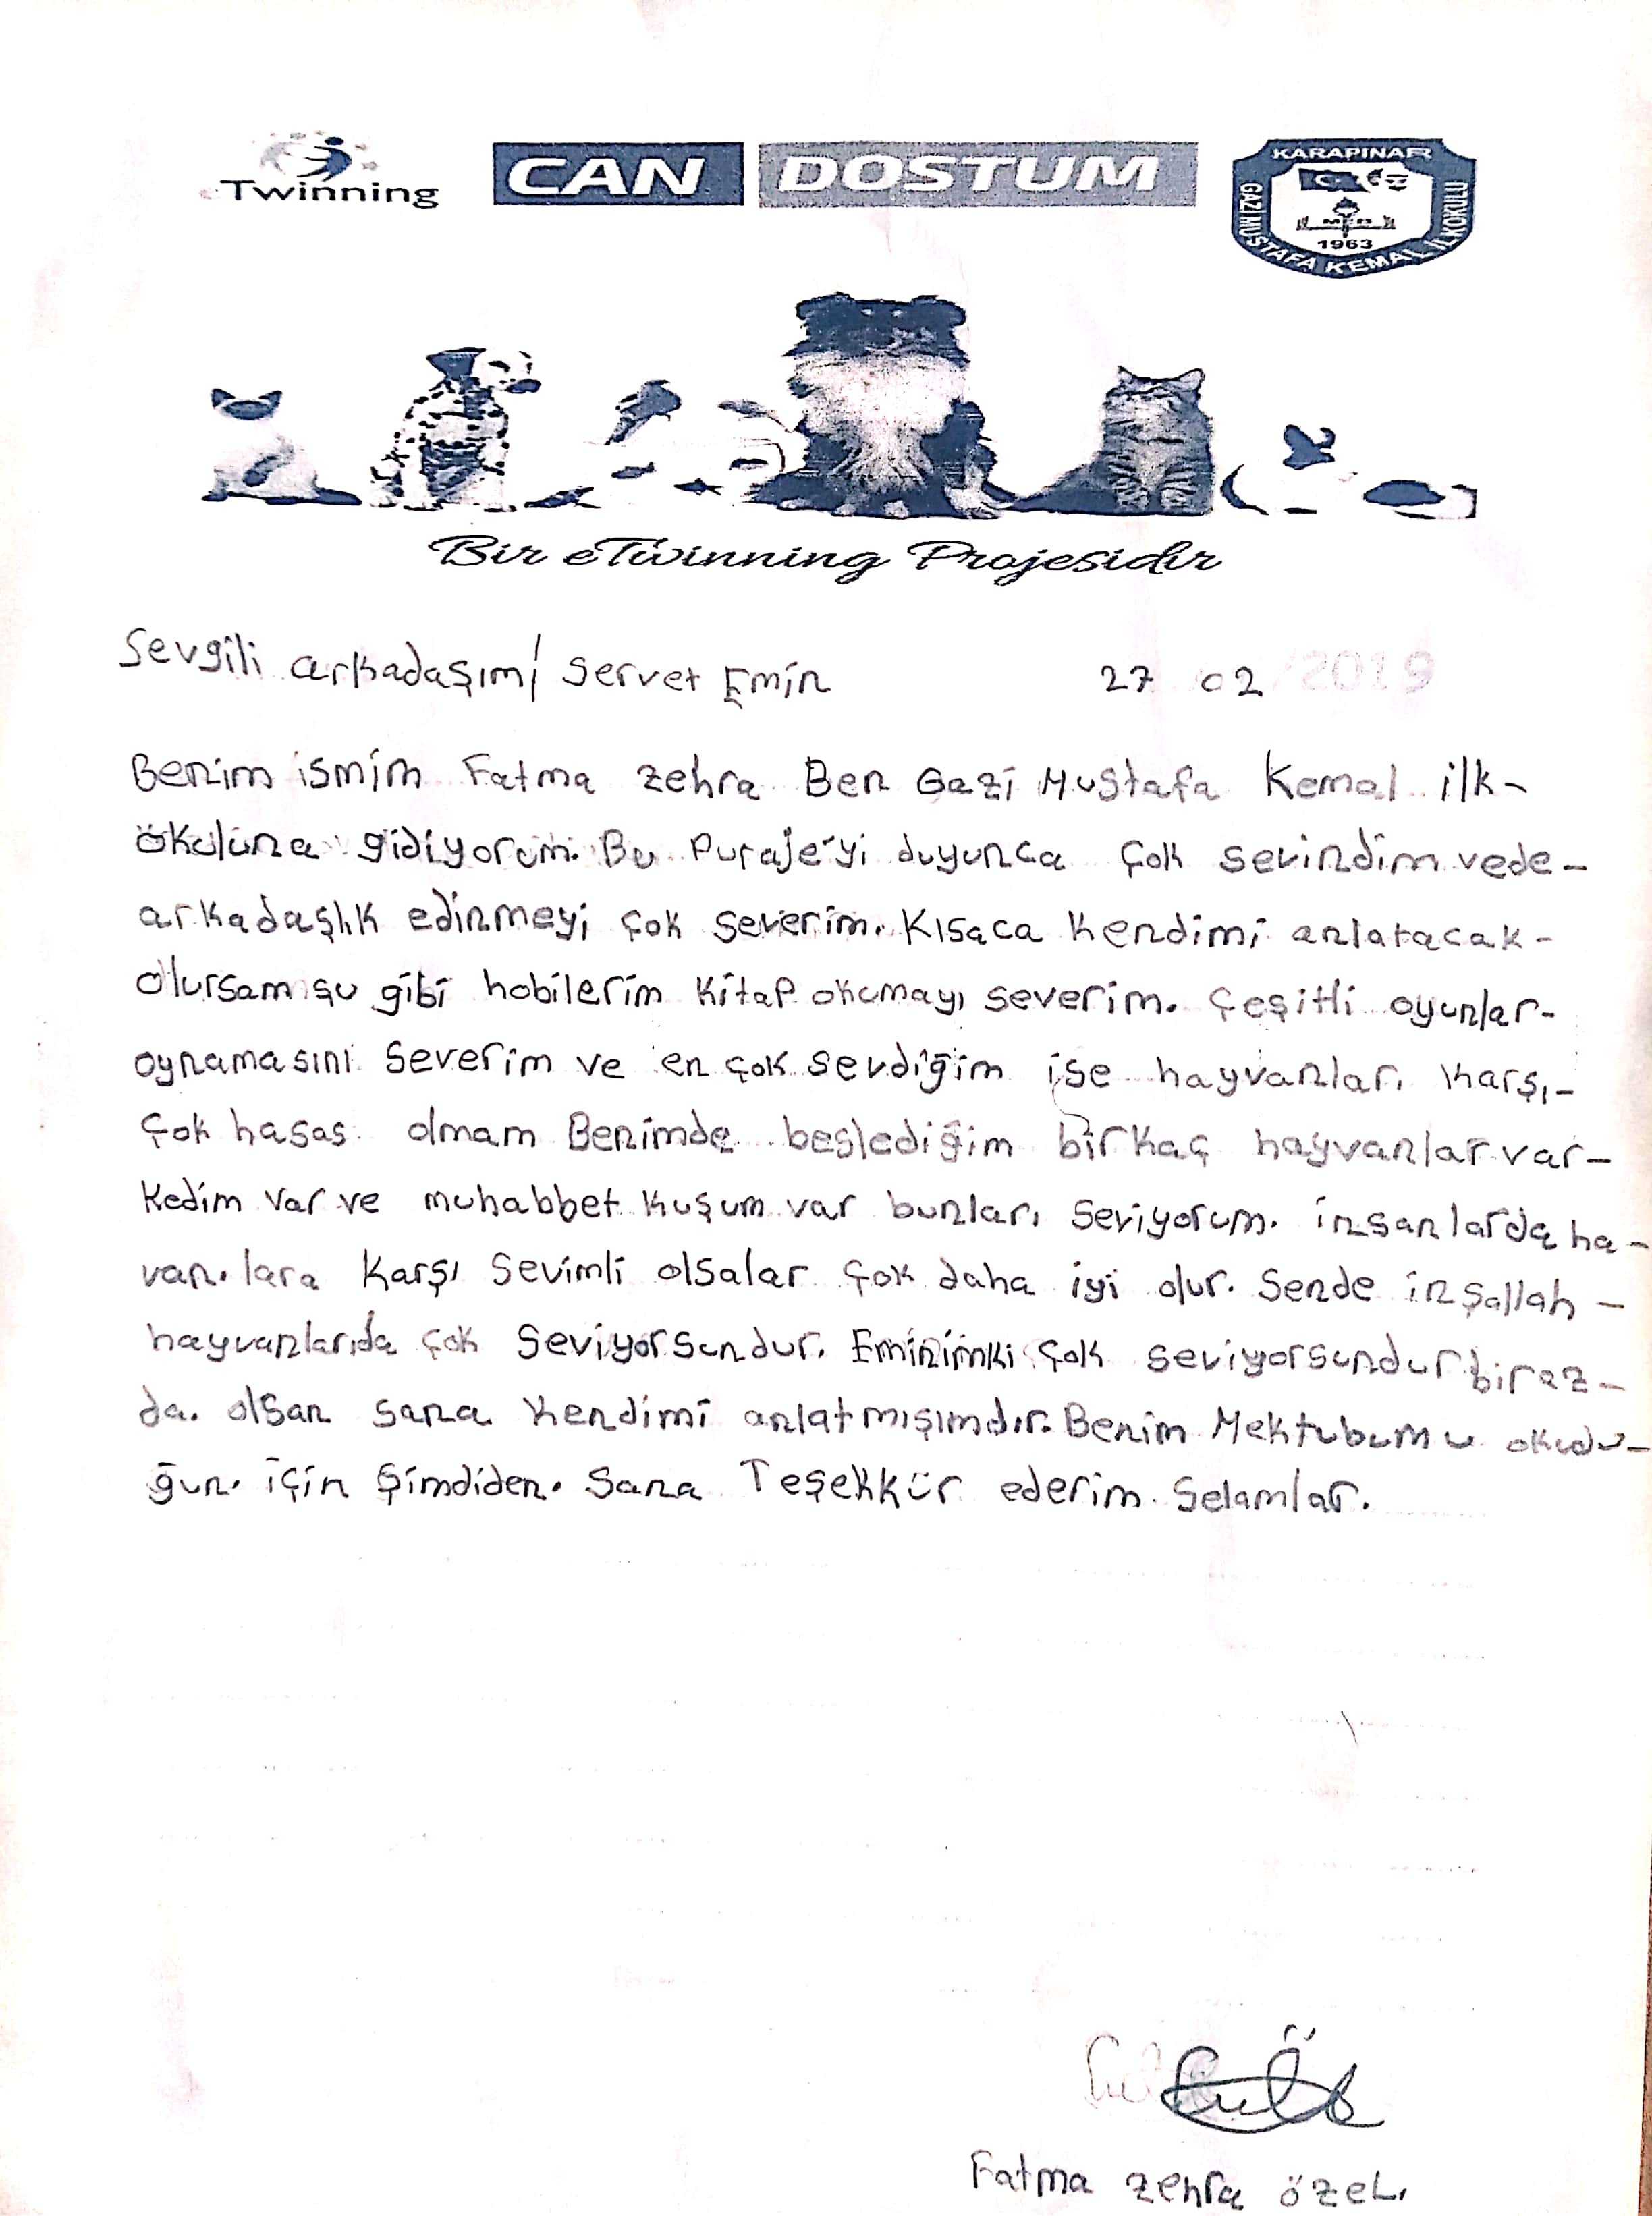 eTwinning
CAN DOSTUM
KARAPINAR
GAZİ MUSTAFA KEMAL İLKOKULU
MEB
1963
Bir eTwinning Projesidir
Sevgili arkadaşım/ Servet Emin 27 02 /2019
Benim ismim Fatma Zehra Ben Gazi Mustafa Kemal ilk-
Okuluna gidiyorum. Bu Puraje'yi duyunca çok sevindim vede-
arkadaşlık edinmeyi çok severim. Kısaca Kendimi anlatacak-
Olursam şu gibi hobilerim Kitap okumayı severim. Çeşitli oyunlar-
oynamasını severim ve en çok sevdiğim ise hayvanları Karşı-
Çok hasas olmam Benimde beslediğim birkaç hayvanlar var-
Kedim var ve muhabbet Kuşum var bunları seviyorum. insanlarda ha-
van.lara Karşı Sevimli olsalar çok daha iyi olur. Sende inşallah-
hayvanlarıda çok Seviyorsundur. Eminimki çok seviyorsundur biraz-
da. olsan sana Kendimi anlatmışımdır. Benim Mektubumu okudu-
ğun. için Şimdiden. Sana Teşekkür ederim. Selamlar.
Fatma Zehra ÖZEL.